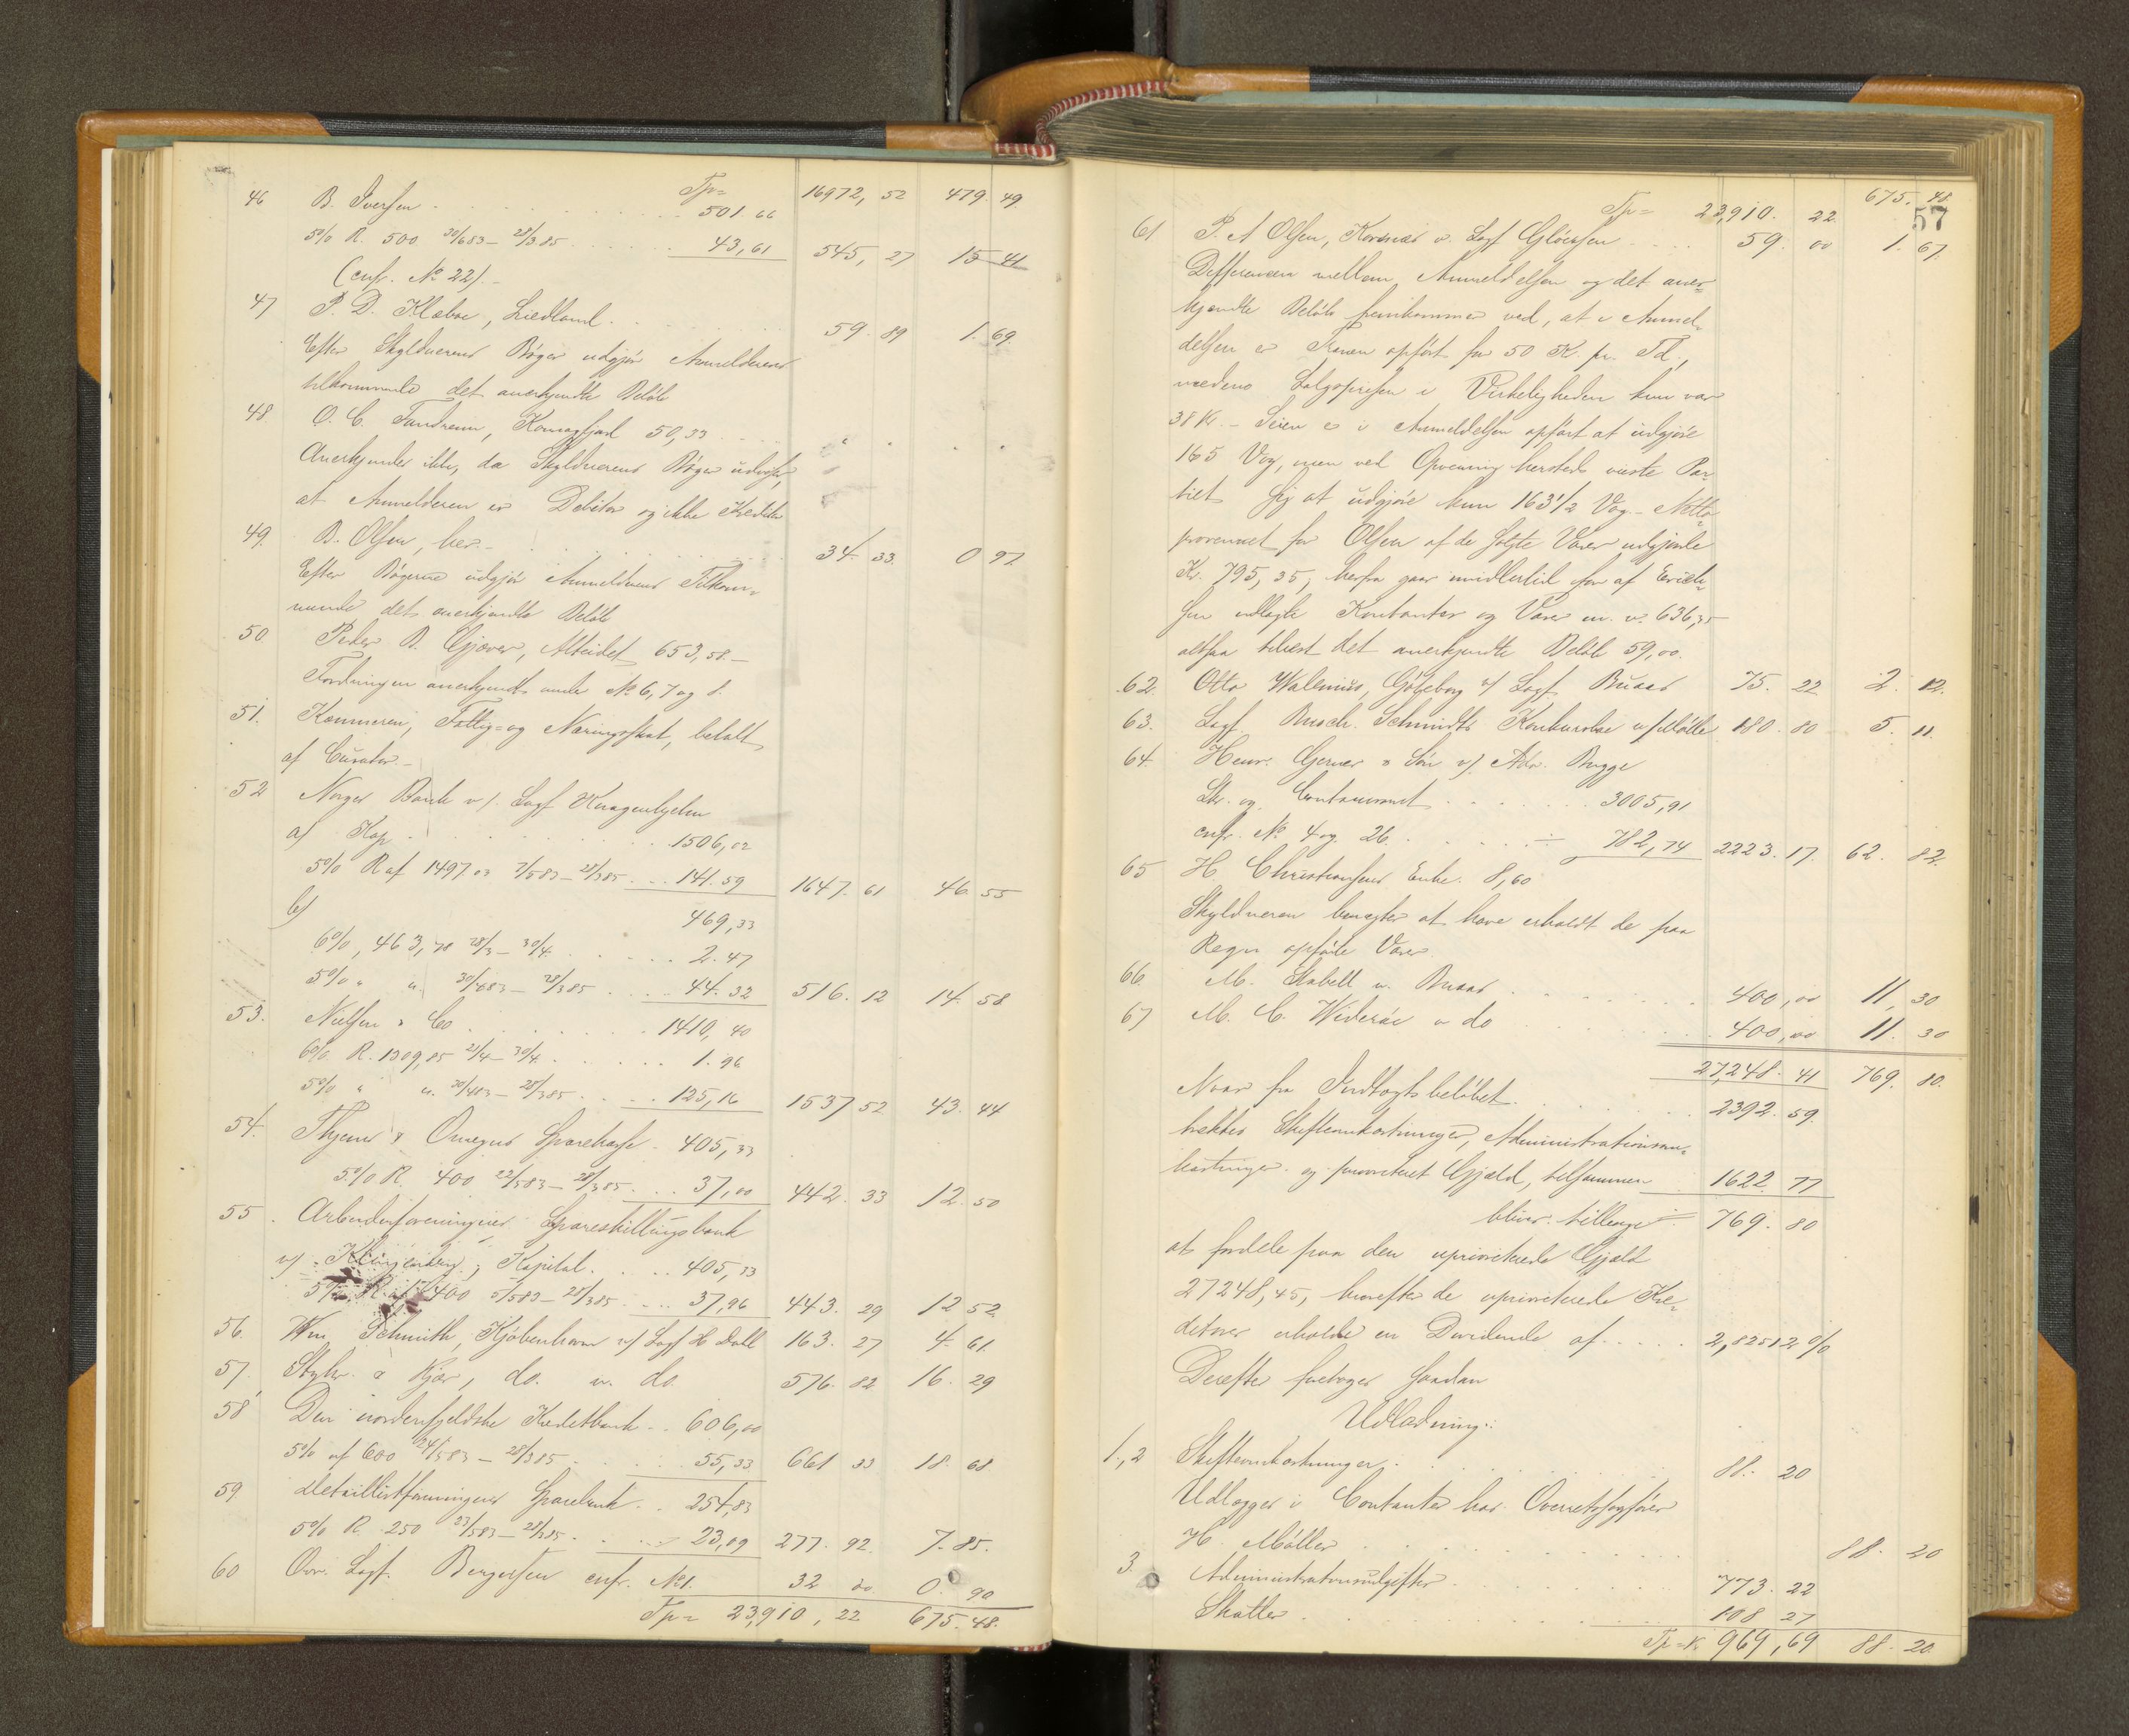 Tp= 16972,52 479.49.
46 B. Iversen . . . 501.66
5% R. 500 30/683 – 28/385 . . . 43,61 545,27 15 41
(cnfr. No 22). –
47 P. D. Klæboe, Liedland . . . 59.89 1.69.
Efter Skyldnerens Bøger udgjør Anmelderens
tilkommende det anerkjendte Beløb
48. O. C. Tandrem, Komagfjord 50,33 . . .
Anerkjendes ikke, da Skyldnerens Bøger udviser,
at Anmelderen er Debitor og ikke Kreditor
49. B. Olsen, her. – . . . 34.33. 0 97
Efter Bøgerne udgjør Anmelderens Tilkom-
mende det anerkjendte Beløb
50 Peder B. Gjæver, Alteidet 653,58. –
Fordringen anerkjendt under No 6, 7 og 8.
51. Kæmneren, Fattig- og Næringsskat, betalt
af Curator. –
52 Norges Bank v/. Sagf Knagenhjelm
a) Kap. . . . 1506,02
5% R af 1497.03 7/583 – 28/385 . . . 141.59 1647.61 46.55
b) 469,33
6%, 463,78 28/3 – 30/4 . . . 2.47
5% " " 30/483 – 28/385 . . . 44.32 516.12 14.58
53. Nielsen & Co . . . 1410,40
6% R. 1309,85 21/4 – 30/4 . . . 1.96
5% " " 30/483 – 28/385 . . . 125,16 1537 52 43.44
54. Thjems & Omegns Sparekasse . 405,33
5% R. 400 22/583 – 28/385 . . . 37,00 442.33 12.50
55. Arbeiderforeningens Spareskillingsbank
v/ Klingenberg; Kapital . . . 405,33
5% R. af 400 5/583 – 28/385 . . . 37,96 443.29 12 52
56. Wm Schmith, Kjøbenhavn v/ Sagf H Dahl 163.27 4.61.
57. & Kjær, do. v. do. 576.82 16.29
58 Den nordenfjeldske Kreditbank . . 606,00
5% af 600 24/583 – 28/385 . . . 55,33 661 33 18.68.
59 Detaillistforeningens Sparebank . . 254,83
5% R. 250 23/583 – 28/385 . . . 23,09 277.92. 7.85.
60 Ovr. Sagf. Bergersen cnfr. No 1. 32 00 0.90
Tp= 23,910,22 675.48.
57
Tp= 23,910.22 675.48
61 P. A Olsen, Kornnes v. Sagf Gløersen . . . 59.00 1.67.
Differencen mellem Anmeldelsen og det aner-
kjendte Beløb fremkommer ved, at i Anmel-
delsen er Tranen opført for 50 K. pr. Td.,
medens Salgsprisen i Virkeligheden kun var
38 Kr. – Seien er i Anmeldelsen opført at udgjøre
165 Vog, men ved Opveining hersteds viiste Par-
tiet sig at udgjøre kun 163 1/2 Vog. – Netto-
provenuet for Olsen af de solgte Varer udgjorde
Kr. 795,35; herfra gaar imidlertid for af Erich-
sen udlagte Kontanter og Varer m. v. 636,35
altsaa tilrest det anerkjendte Beløb 59,00.
62. Otto Walenius, Gøteborg v/ Sagf Buaas 75.22 2.12.
63. Sagf Busch. Schmidts Konkursbo v/ Møller 180.80 5.11.
64. Henr. Gerner & Søn v/. Adv. Brygge
Sk. og Contocourant . . . 3005,91
cnfr. No 4 og 26 . . . ÷ 782,74 2223.17. 62.82.
65 H. Christiansens Enke. 8,60
Skyldneren benægter at have erholdt de paa
Regn opførte Varer
66. M. Stabell v. Buaas . . . 400,00 11,30
67 M. C. Widerøe v do . . . 400,00 11.30
27,248.41 769.80.
Naar fra Indtægtsbeløbet . . . 2392.59.
trækkes Skifteomkostninger, Administrationsom-
kostninger og prioriteret Gjæld, tilsammen 1622.77
bliver tillovers = 769.80
at fordele paa den uprioriterede Gjæld
27248,45, hvorefter de uprioriterede Kre-
ditorer erholde en Dividende af . . . 2,82512 %
Derefter foretoges saadan
Udlodning:
1., 2 Skifteomkostninger . . . 88.20
Udlægges i Contanter hos Overretssagfører
H. Møller . . . 88.20
3. Administrationsudgifter . . . 773.22
Skatter . . . 108 27
Tp = Kr. 969,69 88.20